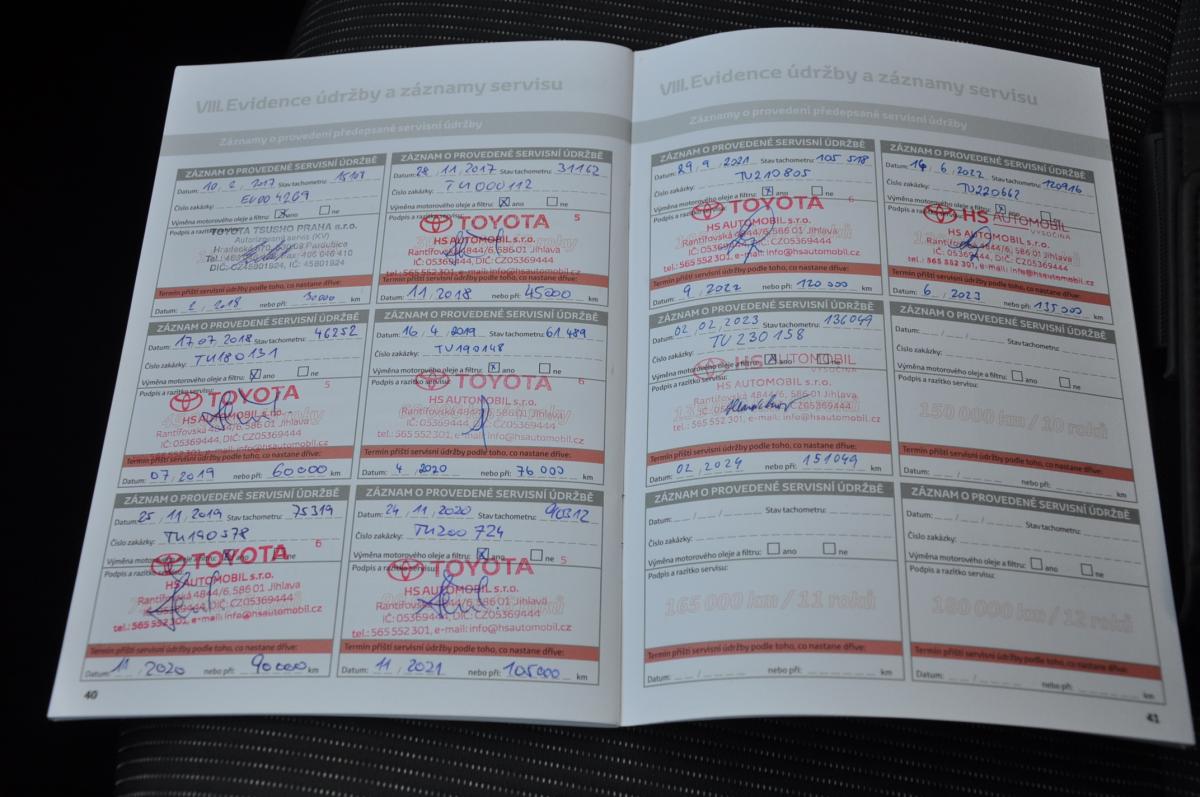 VIII. Evidence údržby a záznamy servisu
Záznamy o provedení předepsané servisní údržby
ZÁZNAM O PROVEDENÉ SERVISNÍ ÚDRŽBĚ
Datum: 10. 2. 2017 Stav tachometru:
Číslo zakázky:
Výměna motorového oleje a filtru: x ano ne
Podpis a razítko
TOYOTA TSUSHO PRAHA s.r.o.
Autorizovaný servis (KV)
DIČ: CZ45801924, IČ: 45801924
Termín příští servisní údržby podle toho, co nastane dříve:
Datum: 2 / 2018 nebo při: 30000 km
ZÁZNAM O PROVEDENÉ SERVISNÍ ÚDRŽBĚ
Datum: 28. 11. 2017 Stav tachometru: 31162
Číslo zakázky: TU000112
Výměna motorového oleje a filtru: x ano ne
Podpis a razítko
TOYOTA 5
HS AUTOMOBIL s.r.o.
Rantířovská 4844/6, 586 01 Jihlava
IČ: 05369444, DIČ: CZ05369444
tel.: 565 552 301, e-mail: info@hsautomobil.cz
Termín příští servisní údržby podle toho, co nastane dříve:
Datum: 11 / 2018 nebo při: 45000 km
ZÁZNAM O PROVEDENÉ SERVISNÍ ÚDRŽBĚ
Datum: 17 07 2018 Stav tachometru: 46252
Číslo zakázky: TU180131
Výměna motorového oleje a filtru: x ano ne
Podpis a razítko servisu: 5
TOYOTA
HS AUTOMOBIL s.r.o.
Rantířovská 4844/6, 586 01 Jihlava
IČ: 05369444, DIČ: CZ05369444
tel.: 565 552 301, e-mail: info@hsautomobil.cz
Termín příští servisní údržby podle toho, co nastane dříve:
Datum: 07 / 2019 nebo při: 60000 km
ZÁZNAM O PROVEDENÉ SERVISNÍ ÚDRŽBĚ
Datum: 16. 4. 2019 Stav tachometru: 61489
Číslo zakázky: TU190148
Výměna motorového oleje a filtru: x ano ne
Podpis a razítko servisu: 6
TOYOTA
HS AUTOMOBIL s.r.o.
Rantířovská 4844/6, 586 01 Jihlava
IČ: 05369444, DIČ: CZ05369444
tel.: 565 552 301, e-mail: info@hsautomobil.cz
Termín příští servisní údržby podle toho, co nastane dříve:
Datum: 4 / 2020 nebo při: 76000 km
ZÁZNAM O PROVEDENÉ SERVISNÍ ÚDRŽBĚ
Datum: 25 / 11 / 2019 Stav tachometru: 75319
Číslo zakázky: TU190578
Výměna motorového oleje a filtru: ano ne 6
Podpis a razítko
TOYOTA
HS AUTOMOBIL s.r.o.
Rantířovská 4844/6, 586 01 Jihlava
IČ: 05369444, DIČ: CZ05369444
tel.: 565 552 301, e-mail: info@hsautomobil.cz
Termín příští servisní údržby podle toho, co nastane dříve:
Datum: 11 / 2020 nebo při: 90000 km
ZÁZNAM O PROVEDENÉ SERVISNÍ ÚDRŽBĚ
Datum: 24 / 11 / 2020 Stav tachometru:
Číslo zakázky: TU200 724
Výměna motorového oleje a filtru: x ano ne 5
Podpis a razítko
TOYOTA
HS AUTOMOBIL s.r.o.
Rantířovská 4844/6, 586 01 Jihlava
IČ: 05369444, DIČ: CZ05369444
tel.: 565 552 301, e-mail: info@hsautomobil.cz
Termín příští servisní údržby podle toho, co nastane dříve:
Datum: 11 / 2021 nebo při: 105000 km
40
VIII. Evidence údržby a záznamy servisu
Záznamy o provedení předepsané servisní údržby
ZÁZNAM O PROVEDENÉ SERVISNÍ ÚDRŽBĚ
Datum: 29. 9. 2021 Stav tachometru: 105 518
Číslo zakázky: TU210805
Výměna motorového oleje a filtru: x ano ne
Podpis a razítko 6
TOYOTA
HS AUTOMOBIL s.r.o.
Rantířovská 4844/6, 586 01 Jihlava
IČ: 05369444, DIČ: CZ05369444
tel.: 565 552 301, e-mail: info@hsautomobil.cz
Termín příští servisní údržby podle toho, co nastane dříve:
Datum: 9 / 2022 nebo při: 120 000 km
ZÁZNAM O PROVEDENÉ SERVISNÍ ÚDRŽBĚ
Datum: 14 / 6 / 2022 Stav tachometru: 120916
Číslo zakázky: TU220662
Výměna motorového oleje a filtru: x
Podpis a razítko
HS AUTOMOBIL
VYSOČINA
HS AUTOMOBIL s.r.o.
Rantířovská 4844/6, 586 01 Jihlava
IČ: 05369444, DIČ: CZ05369444
tel.: 565 552 301, e-mail: info@hsautomobil.cz
Termín příští servisní údržby podle toho, co nastane dříve:
Datum: 6 / 2023 nebo při: 135000 km
ZÁZNAM O PROVEDENÉ SERVISNÍ ÚDRŽBĚ
Datum: 02 / 02 / 2023 Stav tachometru: 136049
Číslo zakázky: TU 230158
Výměna motorového oleje a filtru: x ano ne
Podpis a razítko
HS AUTOMOBIL
VYSOČINA
HS AUTOMOBIL s.r.o.
Rantířovská 4844/6, 586 01 Jihlava
IČ: 05369444, DIČ: CZ05369444
tel.: 565 552 301, e-mail: info@hsautomobil.cz
Termín příští servisní údržby podle toho, co nastane dříve:
Datum: 02 / 2024 nebo při: 151049 km
ZÁZNAM O PROVEDENÉ SERVISNÍ ÚDRŽBĚ
Datum: / / Stav tachometru:
Číslo zakázky:
Výměna motorového oleje a filtru: ano ne
Podpis a razítko servisu:
150 000 km / 10 roků
Termín příští servisní údržby podle toho, co nastane dříve:
Datum: / nebo při: km
ZÁZNAM O PROVEDENÉ SERVISNÍ ÚDRŽBĚ
Datum: / / Stav tachometru:
Číslo zakázky:
Výměna motorového oleje a filtru: ano ne
Podpis a razítko servisu:
165 000 km / 11 roků
Termín příští servisní údržby podle toho, co nastane dříve:
Datum: / nebo při: km
ZÁZNAM O PROVEDENÉ SERVISNÍ ÚDRŽBĚ
Datum: / / Stav tachometru:
Číslo zakázky:
Výměna motorového oleje a filtru: ano ne
Podpis a razítko servisu:
180 000 km / 12 roků
Termín příští servisní údržby podle toho, co nastane dříve:
Datum: / nebo při: km
41